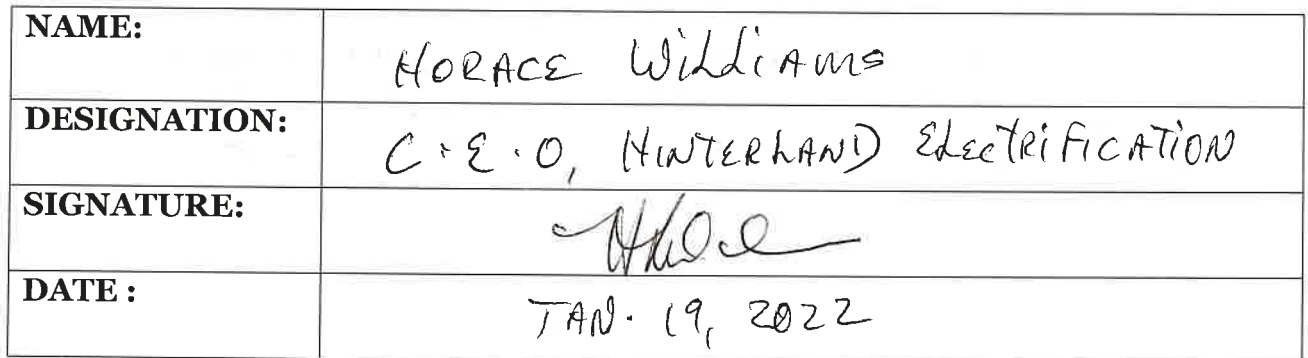 NAME: HORACE Williams
DESIGNATION: C.E.O, HINTERLAND Electrification
SIGNATURE:
DATE : JAN. 19, 2022